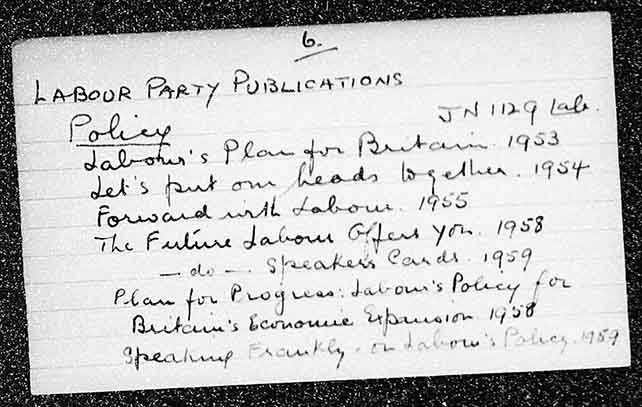 6.
LABOUR PARTY PUBLICATIONS
JN 1129 Lab.
Policy
Labour's Plan for Britain. 1953
Let's put our heads together. 1954
Forward with Labour. 1955
The Future Labour Offers You. 1958
— do —. Speakers Cards. 1959
Plan for Progress: Labour's Policy for
Britain's Economic Expansion 1958
Speaking Frankly - on Labour's Policy. 1959